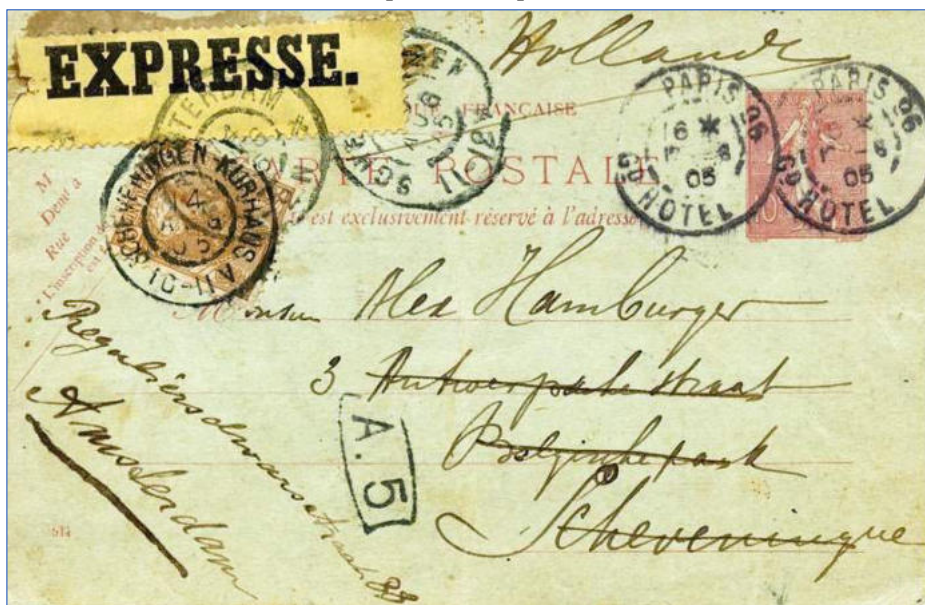 EXPRESSE.
Hollande
FRANÇAISE
CARTE POSTALE
est exclusivement réservé à l'adresse
PARIS 96
16 *
05
Gd HOTEL
PARIS 96
05
Gd HOTEL
10
SCHEVENINGEN-KURHAUS
14
10-11 V
M
Demt à
Rue
L'inscription de
est
Monsieur Alex Hamburger
3 Antwerpsche straat
Belgischepark
Scheveningue
A.5
Reguliersdwarsstraat 88
Amsterdam